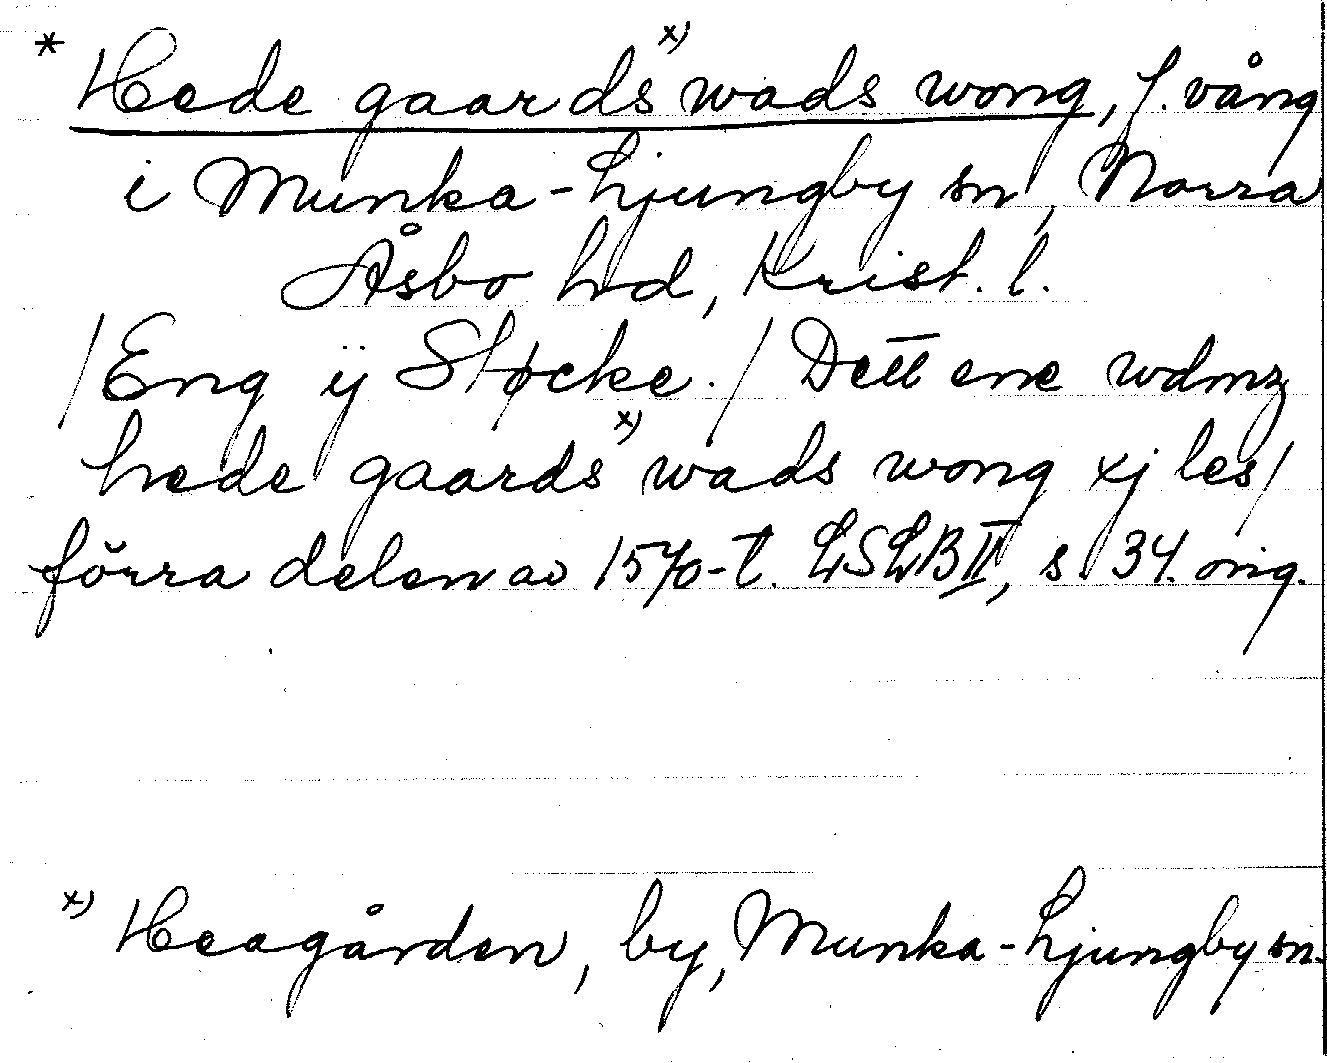 * Hede gaards x) wads wong, f. vång
i Munka-Ljungby sn, Norra
Åsbo hd, Krist. l.
/Eng ÿ Støcke./ Dett ene wdmz
hede gaards x) wads wong xj les/
förra delen av 1570-t. LSLB II, s. 34. orig.
x) Heagården, by, Munka-Ljungby sn.